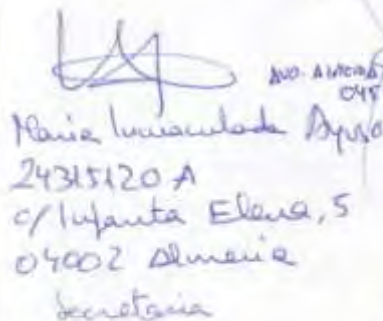 AVD. Almería
045
Maria Inmaculada Ayuso
24315120 A
c/ Infanta Elena, 5
04002 Almeria
Secretaria